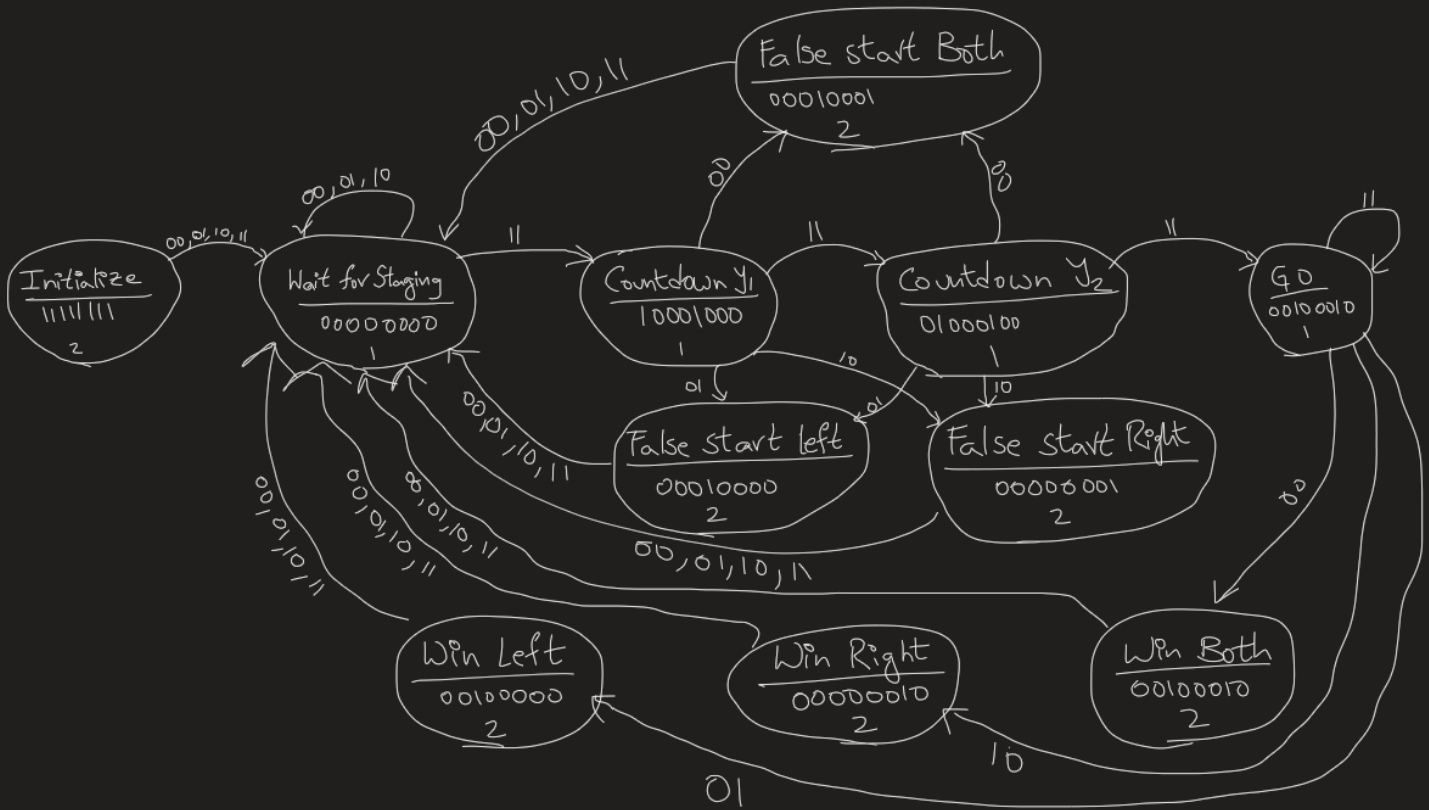 False start Both
00010001
2
00,01,10,11
00
00
00,01,10
11
00,01,10,11
11
11
11
Initialize
11111111
2
Wait for Staging
00000000
1
Countdown Y1
10001000
1
Countdown Y2
01000100
1
GO
00100010
1
01
10
01
10
00,01,10,11
False start Left
00010000
2
False start Right
00000001
2
00
00,01,10,11
00,01,10,11
00,01,10,11
00,01,10,11
Win Left
00100000
2
Win Right
00000010
2
Win Both
00100010
2
10
01